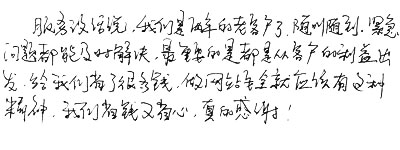 服务没话说,我们是两年的老客户了,随叫随到,紧急
问题都能及时解决,最重要的是都是从客户的利益出
发,给我们省了很多钱,做网站安全就应该有这种
精神,我们省钱又省心,真的感谢!